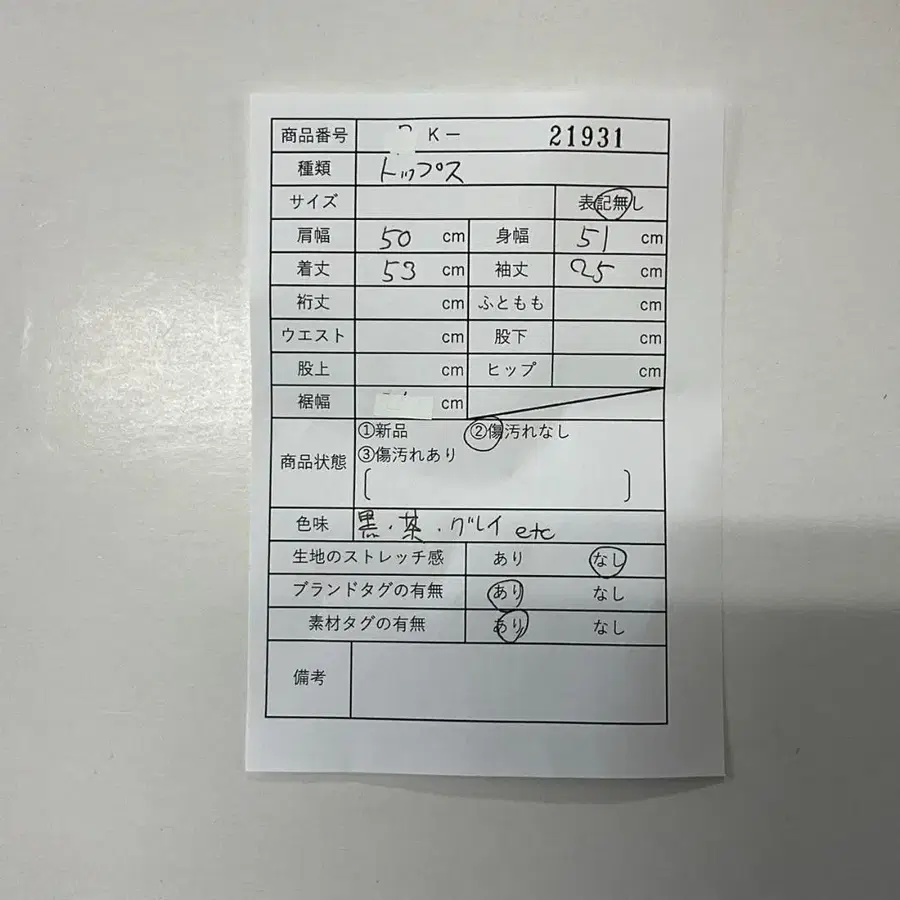 商品番号 K－ 21931
種類 トップス
サイズ 表記無し
肩幅 50 cm 身幅 51 cm
着丈 53 cm 袖丈 25 cm
裄丈 cm ふともも cm
ウエスト cm 股下 cm
股上 cm ヒップ cm
裾幅 cm
商品状態 ①新品 ②傷汚れなし
③傷汚れあり
色味 黒・茶・グレイ etc
生地のストレッチ感 あり なし
ブランドタグの有無 あり なし
素材タグの有無 あり なし
備考